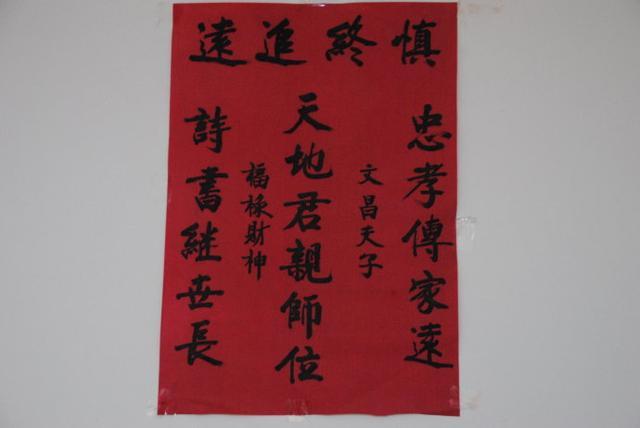 慎終追遠
忠孝傳家遠
文昌夫子
天地君親師位
福祿財神
詩書継世長